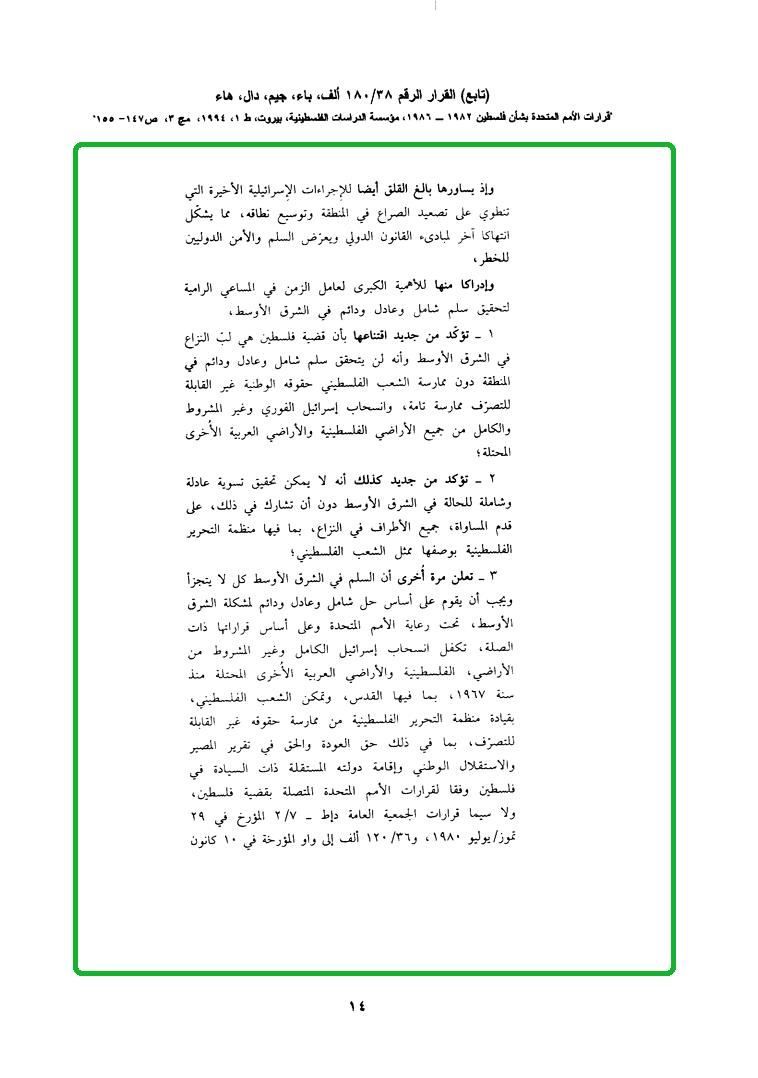 (تابع) القرار الرقم ١٨٠/٣٨ ألف، باء، جيم، دال، هاء
"قرارات الأمم المتحدة بشأن فلسطين ١٩٨٢ ــ ١٩٨٦، مؤسسة الدراسات الفلسطينية، بيروت، ط ١، ١٩٩٤، مج ٣، ص١٤٧- ١٥٥"
وإذ يساورها بالغ القلق أيضا للإجراءات الإسرائيلية الأخيرة التي
تنطوي على تصعيد الصراع في المنطقة وتوسيع نطاقه، مما يشكّل
انتهاكا آخر لمبادىء القانون الدولي ويعرّض السلم والأمن الدوليين
للخطر،
وإدراكا منها للأهمية الكبرى لعامل الزمن في المساعي الرامية
لتحقيق سلم شامل وعادل ودائم في الشرق الأوسط،
١ ـ تؤكّد من جديد اقتناعها بأن قضية فلسطين هي لبّ النزاع
في الشرق الأوسط وأنه لن يتحقق سلم شامل وعادل ودائم في
المنطقة دون ممارسة الشعب الفلسطيني حقوقه الوطنية غير القابلة
للتصرّف ممارسة تامة، وانسحاب إسرائيل الفوري وغير المشروط
والكامل من جميع الأراضي الفلسطينية والأراضي العربية الأُخرى
المحتلة؛
٢ ـ تؤكد من جديد كذلك أنه لا يمكن تحقيق تسوية عادلة
وشاملة للحالة في الشرق الأوسط دون أن تشارك في ذلك، على
قدم المساواة، جميع الأطراف في النزاع، بما فيها منظمة التحرير
الفلسطينية بوصفها ممثل الشعب الفلسطيني؛
٣ ـ تعلن مرة أُخرى أن السلم في الشرق الأوسط كل لا يتجزأ
ويجب أن يقوم على أساس حل شامل وعادل ودائم لمشكلة الشرق
الأوسط، تحت رعاية الأمم المتحدة وعلى أساس قراراتها ذات
الصلة، تكفل انسحاب إسرائيل الكامل وغير المشروط من
الأراضي، الفلسطينية والأراضي العربية الأُخرى المحتلة منذ
سنة ١٩٦٧، بما فيها القدس، وتمكن الشعب الفلسطيني،
بقيادة منظمة التحرير الفلسطينية من ممارسة حقوقه غير القابلة
للتصرّف، بما في ذلك حق العودة والحق في تقرير المصير
والاستقلال الوطني وإقامة دولته المستقلة ذات السيادة في
فلسطين وفقا لقرارات الأمم المتحدة المتصلة بقضية فلسطين،
ولا سيما قرارات الجمعية العامة دإط ـ ٢/٧ المؤرخ في ٢٩
تموز/يوليو ١٩٨٠، و١٢٠/٣٦ ألف إلى واو المؤرخة في ١٠ كانون
١٤